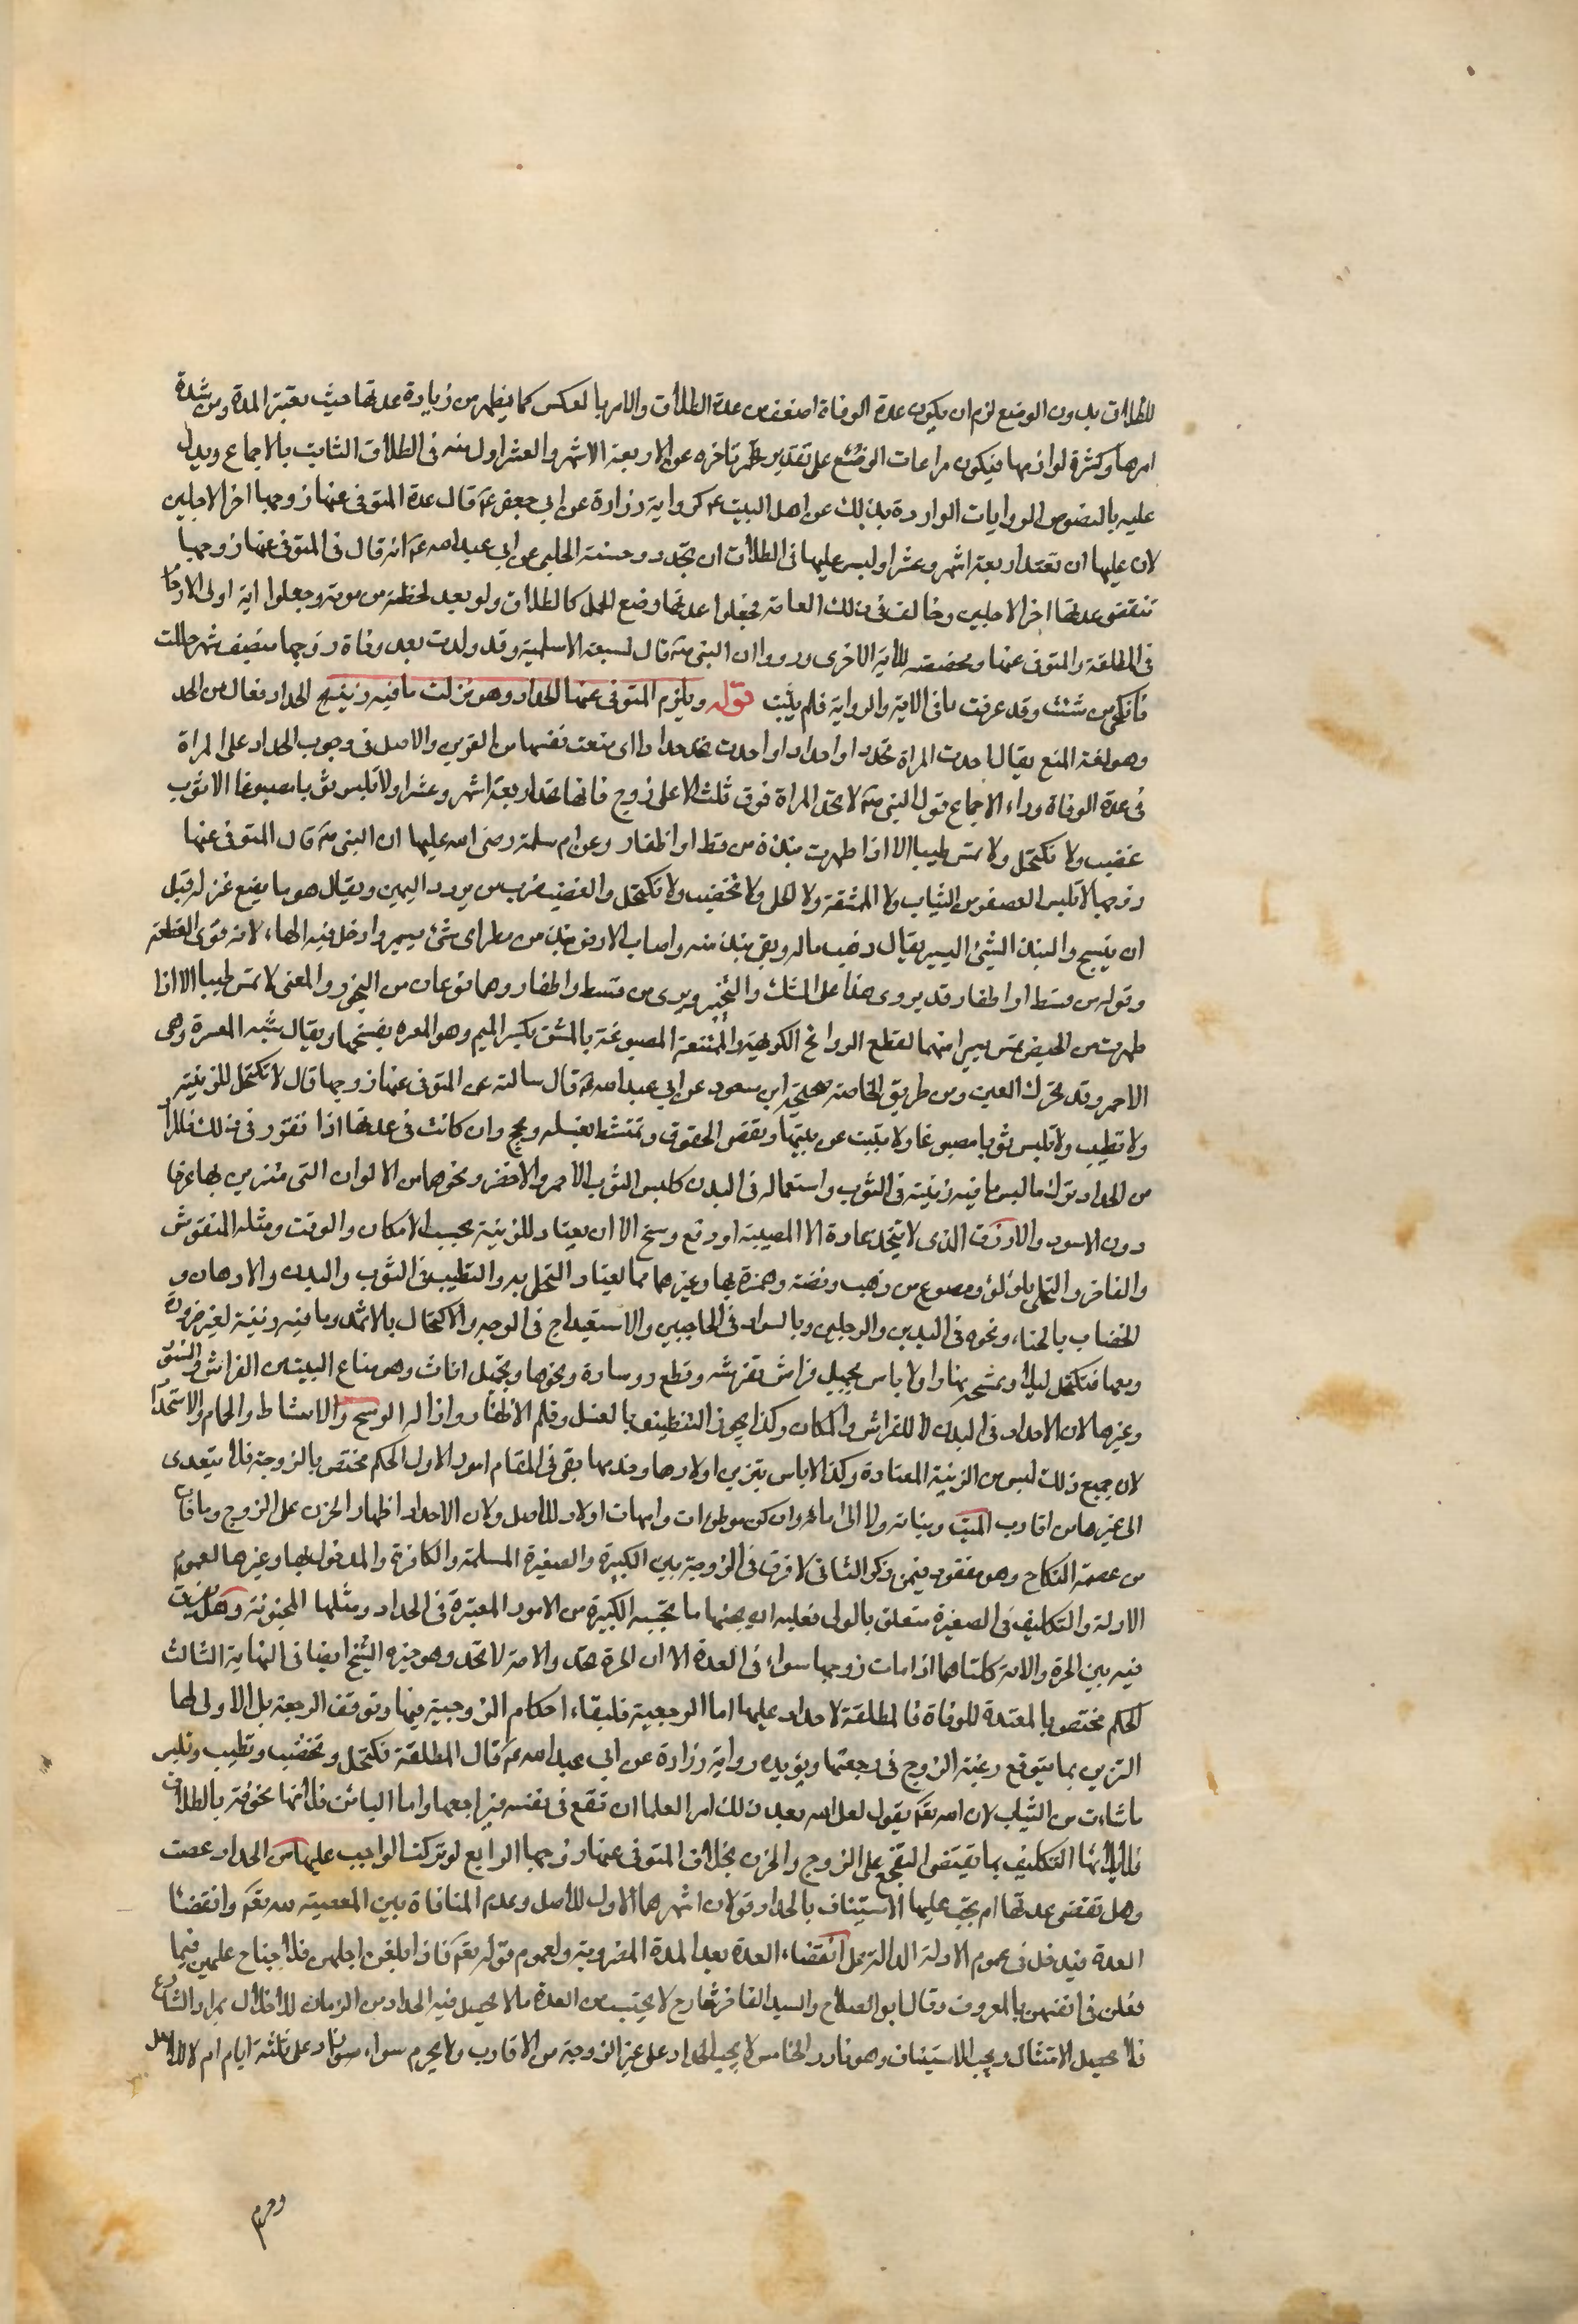 للطلاق بدون الوضع لزم ان يكون عدة الوفاة اضعف من عدة الطلاق والامر بالعكس كما يظهر من زيادة عدتها حيث يعتبر المدة ومن شدة
امرها وكثرة لوازمها فيكون مراعات الوضع على تقدير تاخره عن الاربعة الاشهر والعشر اولى منه في الطلاق الثابت بالاجماع ويدل
عليه بالنصوص الروايات الواردة بذلك عن اهل البيت ع كرواية زرارة عن ابي جعفر ع قال عدة المتوفى عنها زوجها اخر الاجلين
لان عليها ان تعتد اربعة اشهر وعشرا وليس عليها في الطلاق ان تحدد وحسنة الحلبي عن ابي عبد الله ع انه قال في المتوفى عنها زوجها
تنقضى عدتها اخر الاجلين وخالف في ذلك العامة فجعلوا عدتها وضع الحمل كالطلاق ولو بعد لحظة من موته وجعلوا اية اولى الارحا
في المطلقة والمتوفى عنها ومخصصة للاية الاخرى ورووا ان النبي ص قال لسبيعة الاسلمية وقد ولدت بعد وفاة زوجها بنصف شهر حللت
فانكحي من شئت وقد عرفت ما في الاية والرواية فلم يثبت قوله ويلزم المتوفى عنها الحداد وهو ترك ما فيه زينة الحداد فعال من الحد
وهو لغة المنع يقال احدت المراة تحد احدادا وحدت تحد حدادا اى منعت نفسها من التزين والاصل في وجوب الحداد على المراة
في عدة الوفاة وراء الاجماع قول النبي ص لا تحد المراة فوق ثلث الا على زوج فانها تحد اربعة اشهر وعشرا ولا تلبس ثوبا مصبوغا الا ثوب
عصب ولا تكتحل ولا تمس طيبا الا اذا طهرت نبذة من قسط او اظفار وعن ام سلمة رضى الله عليها ان النبي ص قال المتوفى عنها
زوجها لا تلبس المعصفر من الثياب ولا الممشقة ولا الحلى ولا تختضب ولا تكتحل والعصب ضرب من برود اليمن ويقال هو ما يصبغ غزله قبل
ان ينسج والنبذ الشئ اليسير يقال ذهب ماله وبقى نبذ منه واصاب الارض نبذ من مطر اى شئ يسير وادخل فيه الهاء لانه نوى القطعة
وقوله من قسط او اظفار قد يروى هذا على الشك والتخيير ويروى من قسط واظفار وهما نوعان من البخور والمعنى لا تمس طيبا الا اذا
طهرت من الحيض تمس يسيرا منهما لقطع الروائح الكريهة والممشقة المصبوغة بالمشق بكسر الميم وهو المغرة بفتحها ويقال شبه المغرة وهى
الاحمر وقد تحرك العين ومن طريق الخاصة صحيحة ابن مسعود عن ابي عبد الله ع قال سالته عن المتوفى عنها زوجها قال لا تكتحل للزينة
ولا تطيب ولا تلبس ثوبا مصبوغا ولا تبيت عن بيتها وتقضى الحقوق وتمتشط بغسلة وتحج وان كانت في عدتها اذا تقرر ذلك فالمرا
من الحداد ترك ما لبس ما فيه زينة في الثوب واستعماله في البدن كلبس الثوب الاحمر والاخضر ونحوهما من الالوان التى متزين بها عرفا
دون الاسود والازرق الذى لا يتخذ عادة الا للمصيبة او رفع وسخ الا ان يعتاد للزينة بحسب الامكان والوقت ومثله المنقوش
والفاخر والتحلى بلؤلؤ ومصوغ من ذهب وفضة وغيرهما مما يعتاد التحلى به والتطيب في الثوب والبدن والادهان و
الخضاب بالحناء ونحوه في اليدين والرجلين وبالسواد في الحاجبين والاسفيداج في الوجه والاكتحال بالاثمد وما فيه زينة لغير ضرورة
ومعها فتكتحل ليلا وتمسحه نهارا ولا باس بجميل فراش تفرشه ونطع ووسادة ونحوها وتجميل اثاث وهو متاع البيت من الفراش والستو
وغيرها لان الاحداد في البدن لا للفراش والمكان وكذا يجوز التنظيف بالغسل وقلم الاظفار وازالة الوسخ والامتشاط والحمام والاستحدا
لان جميع ذلك ليس من الزينة المعتادة وكذا لا باس بتزيين اولادها وخدمها بقى في المقام امور الاول الحكم مختص بالزوجة فلا يتعدى
الى غيرها من اقارب الميت وبناته ولا الى امائه وان كن موطؤات وامهات اولاد للاصل ولان الاحداد اظهار الحزن على الزوج وما فات
من عصمة النكاح وهو مفقود فيمن ذكر الثانى لا فرق في الزوجة بين الكبيرة والصغيرة المسلمة والكافرة والمدخول بها وغيرها لعموم
الادلة والتكليف في الصغيرة متعلق بالولى فعليه ان يجنبها ما تجتنبه الكبيرة من الامور المعتبرة في الحداد ومثلها المجنونة وهل يفرق
فيه بين الحرة والامة كلتاهما اذا مات زوجها سواء في العدة الا ان الحرة تحد والامة لا تحد وهو خيرة الشيخ ايضا في النهاية الثالث
الحكم مختص بالمعتدة للوفاة فالمطلقة لا حداد عليها اما الرجعية فلبقاء احكام الزوجية فيها وتوقف الرجعة بل الاولى لها
التزين بما يتوقع رغبة الزوج في رجعتها ويؤيده رواية زرارة عن ابي عبد الله ع قال المطلقة تكتحل وتختضب وتطيب وتلبس
ما شاءت من الثياب لان الله تعالى يقول لعل الله يحدث بعد ذلك امرا لعلها ان تقع في نفسه فيراجعها واما البائن فلانها مجفوة بالطلاق
فلا يلائمها التكليف بما يقتضى التفجع على الزوج والحزن بخلاف المتوفى عنها زوجها الرابع لو تركت الواجب عليها من الحداد عصت
وهل تنقضى عدتها ام يجب عليها الاستيناف بالحداد قولان اشهرهما الاول للاصل وعدم المنافاة بين المعصية لله تعالى وانقضاء
العدة فيدخل في عموم الادلة الدالة على انقضاء العدة بعد المدة المضروبة ولعموم قوله تعالى فاذا بلغن اجلهن فلا جناح عليهن فيما
فعلن في انفسهن بالمعروف وقال ابو الصلاح والسيد الفاخر شارح لا يحتسب من العدة ما لا يحصل فيه الحداد من الزمان للاخلال بمراد الشارع
فلا يحصل الامتثال ويجب الاستيناف وهو نادر الخامس لا يجب الحداد على غير الزوجة من الاقارب ولا يحرم سواء زاد على ثلثة ايام ام لا للاصل